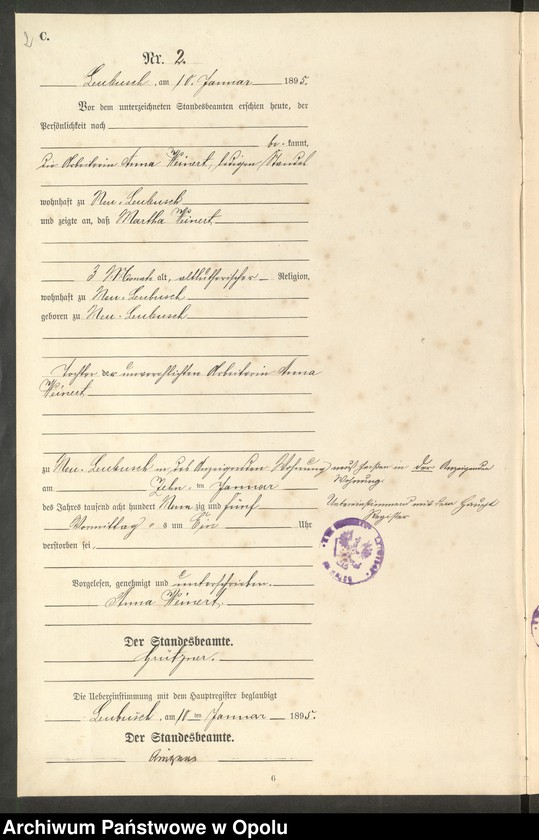 2
C.
Nr. 2.
Leubusch, am 10. Januar 1895.
Vor dem unterzeichneten Standesbeamten erschien heute, der
Persönlichkeit nach
be-kannt,
die Arbeiterin Anna Weinert, ledigen Standes
wohnhaft zu Neu-Leubusch
und zeigte an, daß Martha Weinert
3 Monate alt, altlutherischer Religion,
wohnhaft zu Neu-Leubusch
geboren zu Neu-Leubusch
Tochter der unverehelichten Arbeiterin Anna
Weinert
zu Neu-Leubusch in des Anzeigenden Wohnung muß heißen in der Anzeigenden
Wohnung.
am Zehn-ten Januar
des Jahres tausend acht hundert Neunzig und fünf
Uebereinstimmend mit dem Haupt
Register
Vormittags um Ein Uhr
verstorben sei,
Vorgelesen, genehmigt und unterschrieben.
Anna Weinert,
Der Standesbeamte.
Die Uebereinstimmung mit dem Hauptregister beglaubigt
Leubusch, am 10 ten Januar 1895.
Der Standesbeamte.
6
Archiwum Państwowe w Opolu